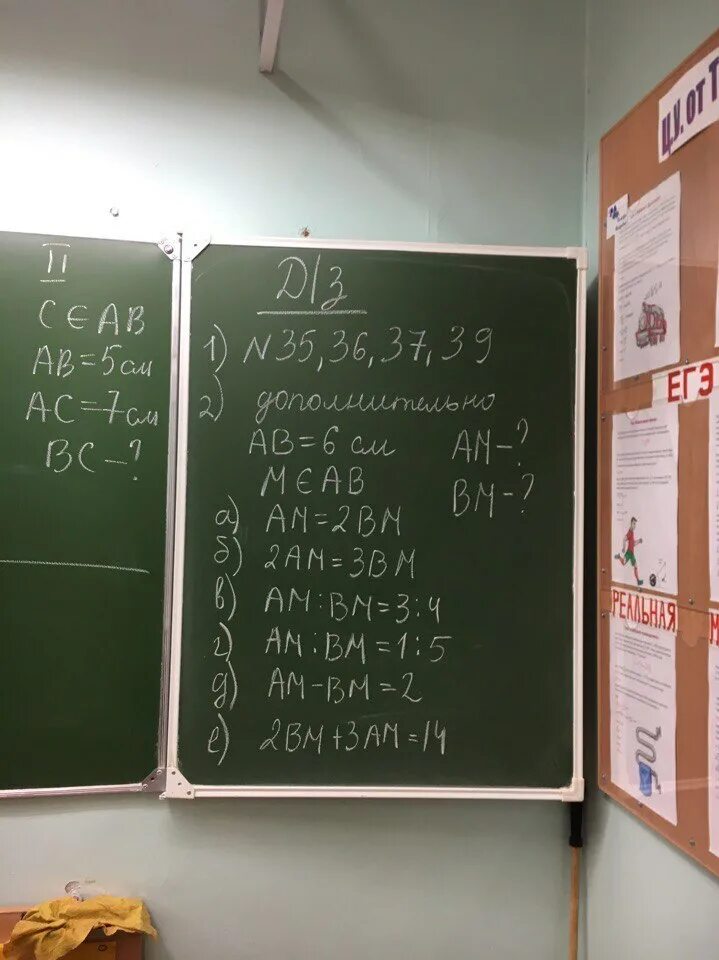 II
C ∈ AB
AB = 5 см
AC = 7 см
BC - ?
Д/з
1) N 35, 36, 37, 39
2) дополнительно
AB = 6 см AM - ?
M ∈ AB BM - ?
а) AM = 2BM
б) 2AM = 3BM
в) AM : BM = 3 : 4
г) AM : BM = 1 : 5
д) AM - BM = 2
е) 2BM + 3AM = 14
Ц.У. ОТ Т
ЕГЭ
РЕАЛЬНАЯ
М